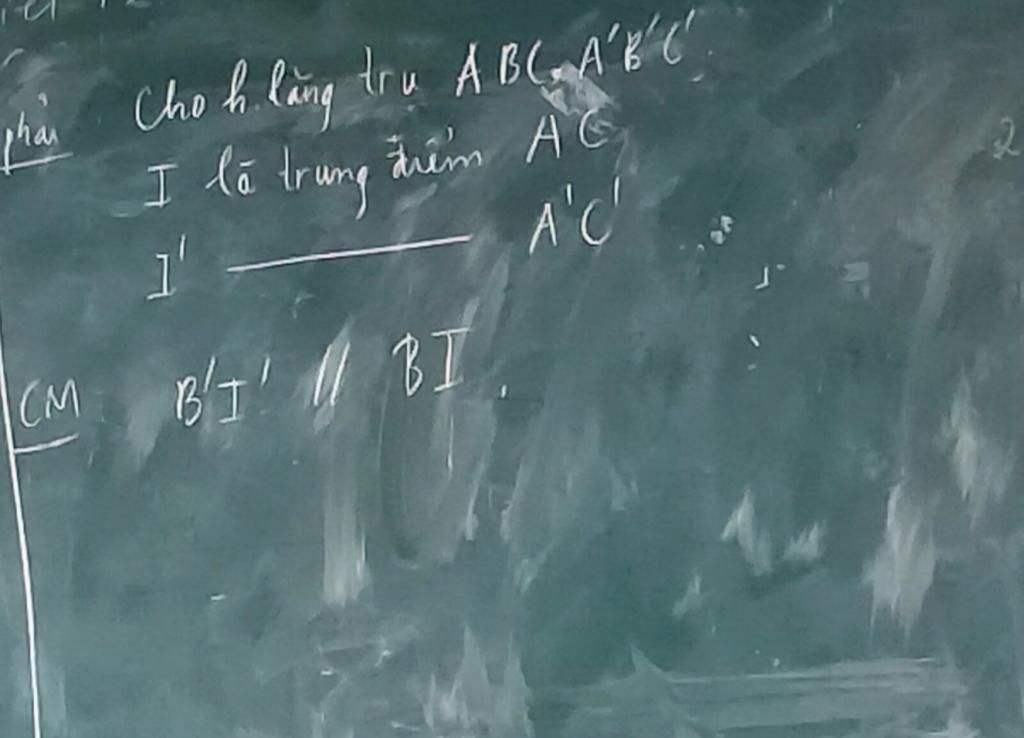 Cho h. lăng trụ ABC.A'B'C'.
phải
I là trung điểm AC
2
I' ——— A'C'
CM B'I' // BI.